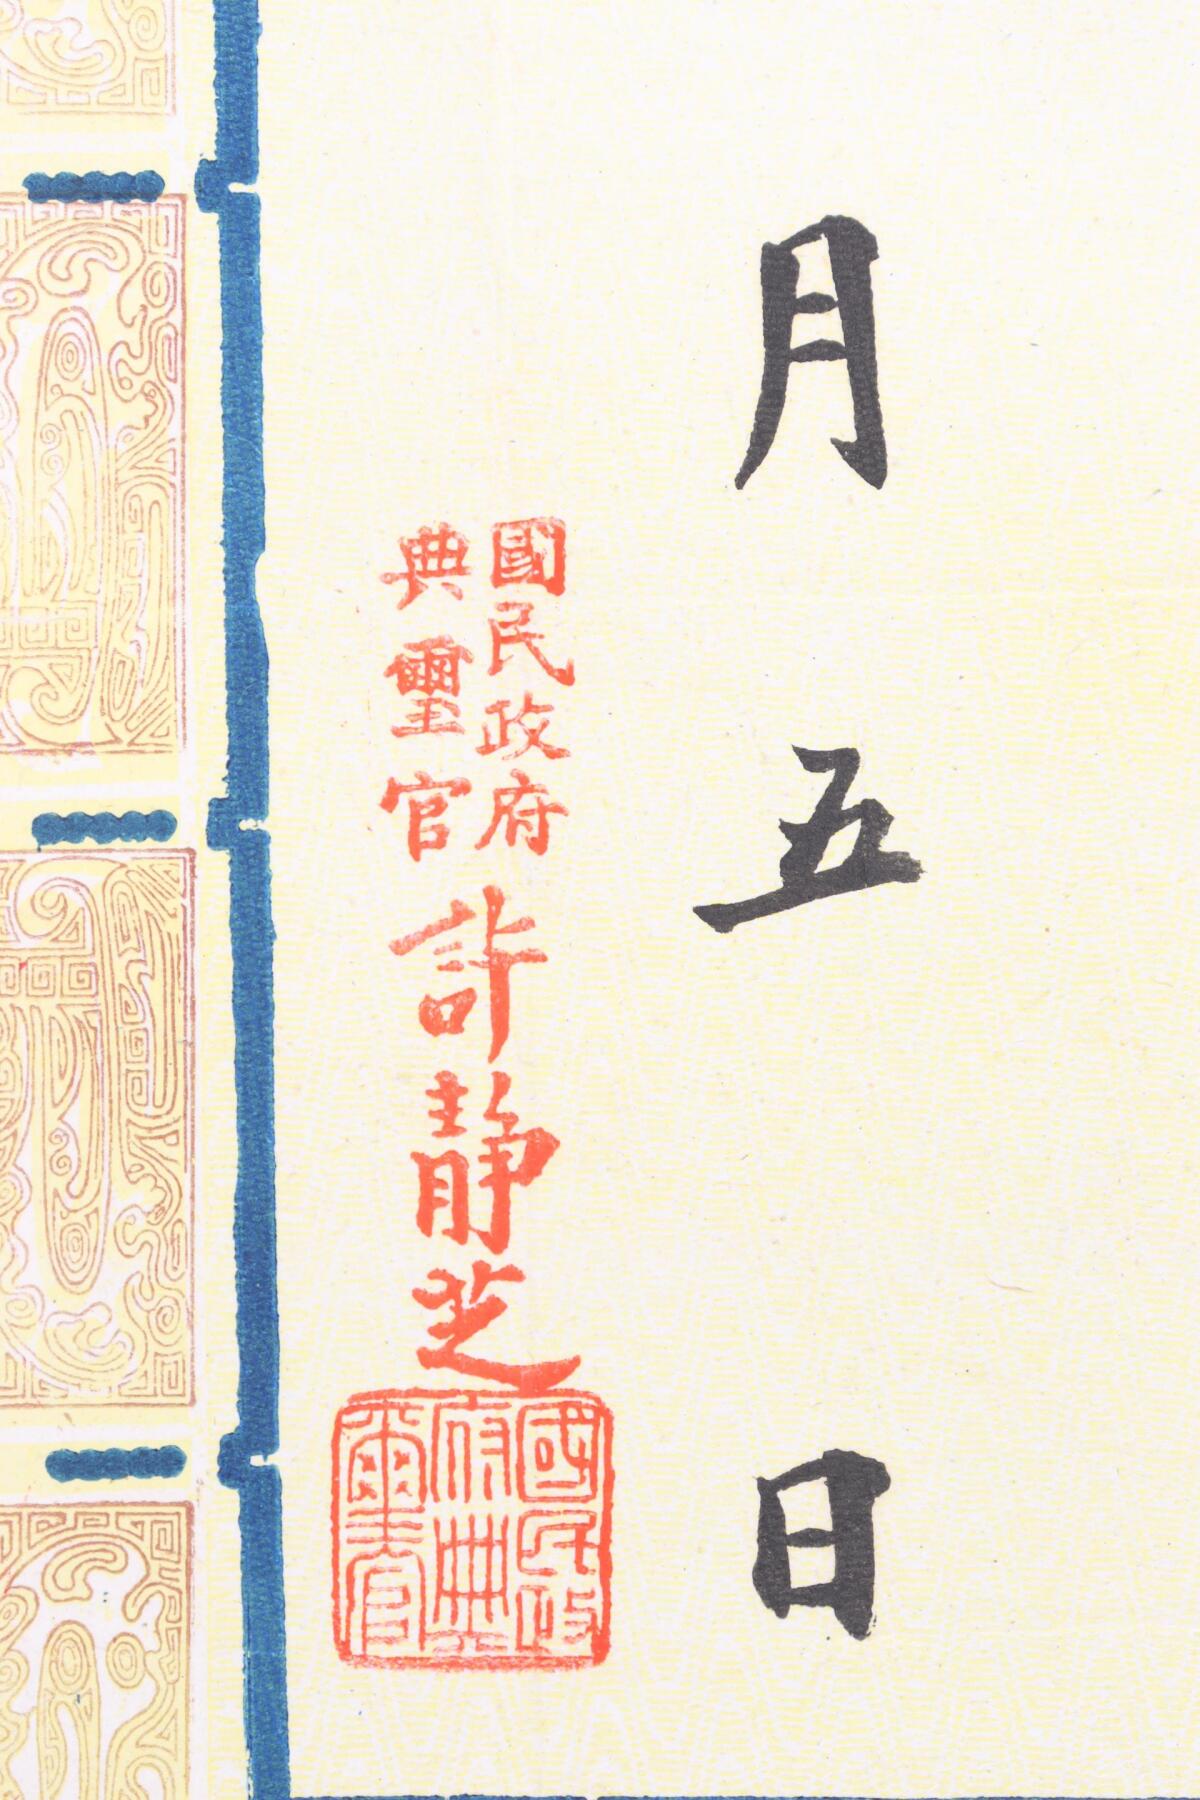 月五日
國民政府
典璽官
許靜芝
國民政
府典
璽官